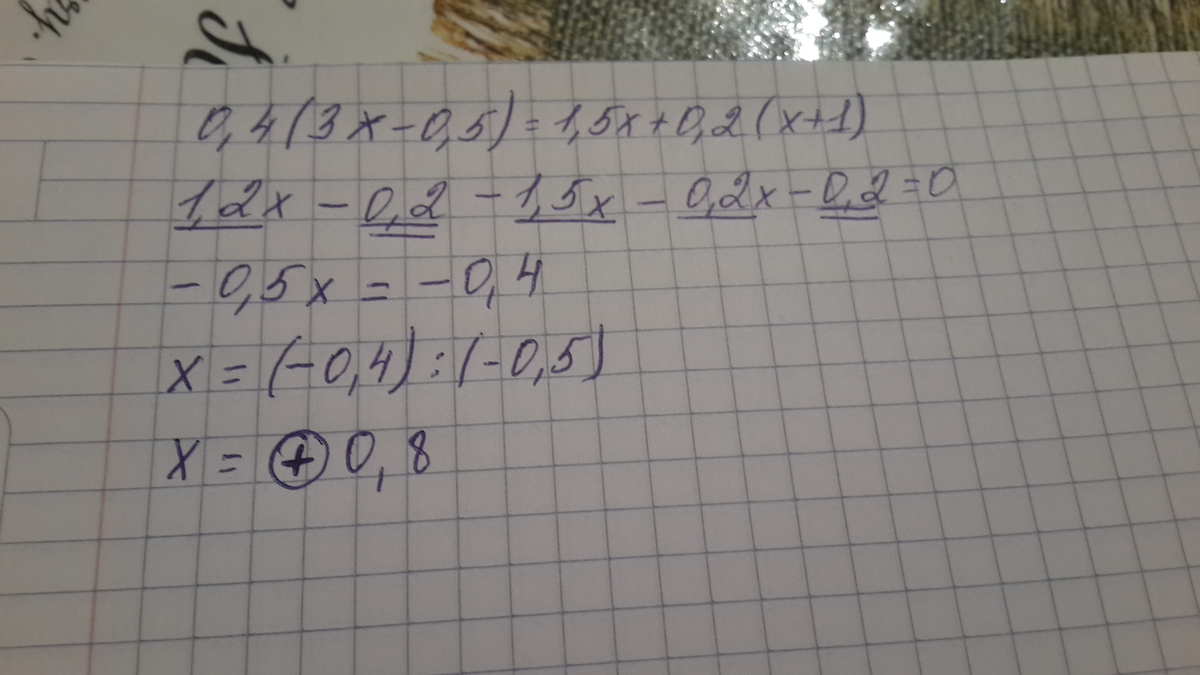 0,4(3x-0,5)=1,5x+0,2(x+1)
1,2x - 0,2 - 1,5x - 0,2x - 0,2 = 0
- 0,5x = - 0,4
x = (-0,4) : (-0,5)
x = + 0,8